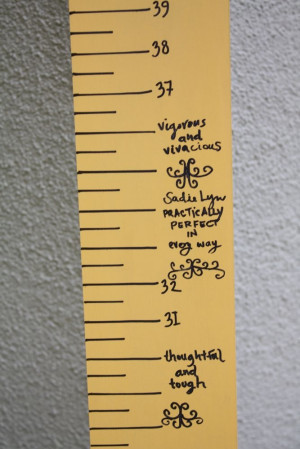 39
38
37
vigorous
and
vivacious
Sadie Lyn
PRACTICALLY
PERFECT
IN
every way
32
31
thoughtful
and
tough